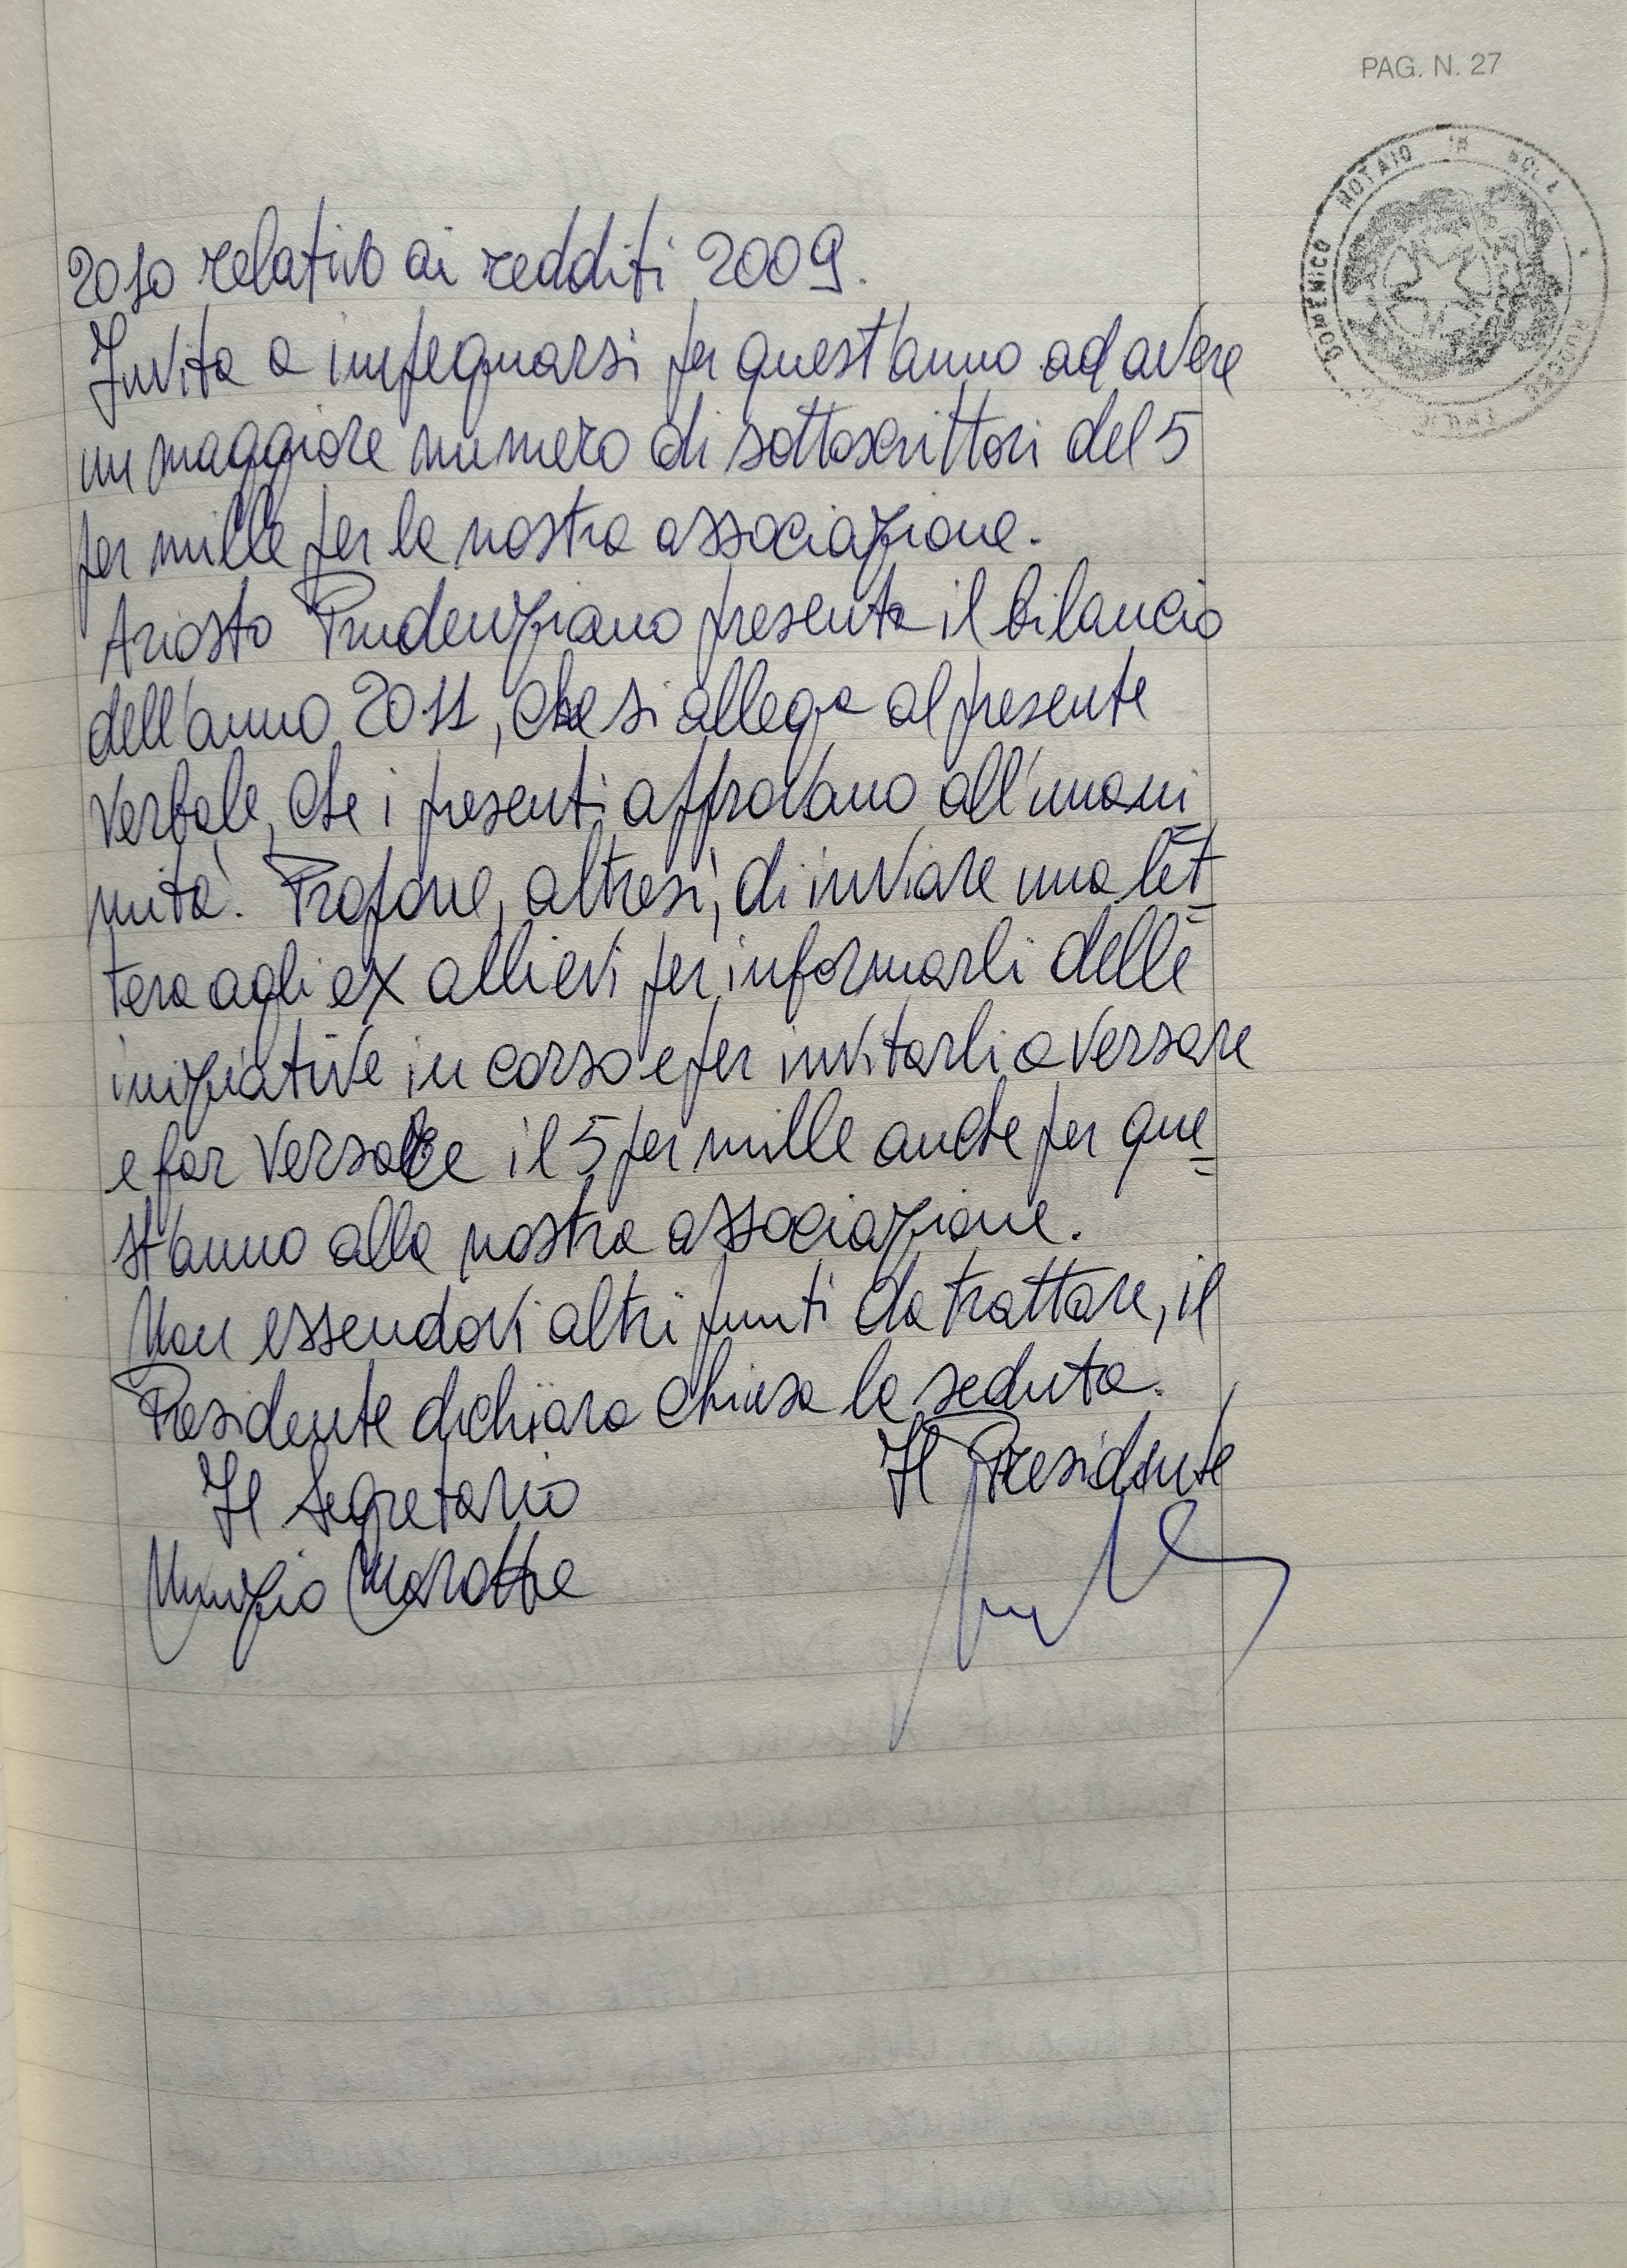 PAG. N. 27
DOMENICO NOTAIO IN
2010 relativo ai redditi 2009.
Invita a impegnarsi per quest'anno ad avere
un maggiore numero di sottoscrittori del 5
per mille per la nostra associazione.
Ariosto Prudenziano presenta il bilancio
dell'anno 2011, che si allega al presente
verbale, che i presenti approvano all'unani
mità. Propone, altresì, di inviare una let
tera agli ex allievi per informarli delle
iniziative in corso e per invitarli a versare
e far versare il 5 per mille anche per que
st'anno alla nostra associazione.
Non essendovi altri punti da trattare, il
Presidente dichiara chiusa la seduta.
Il Segretario Il Presidente
Nunzio Marotta